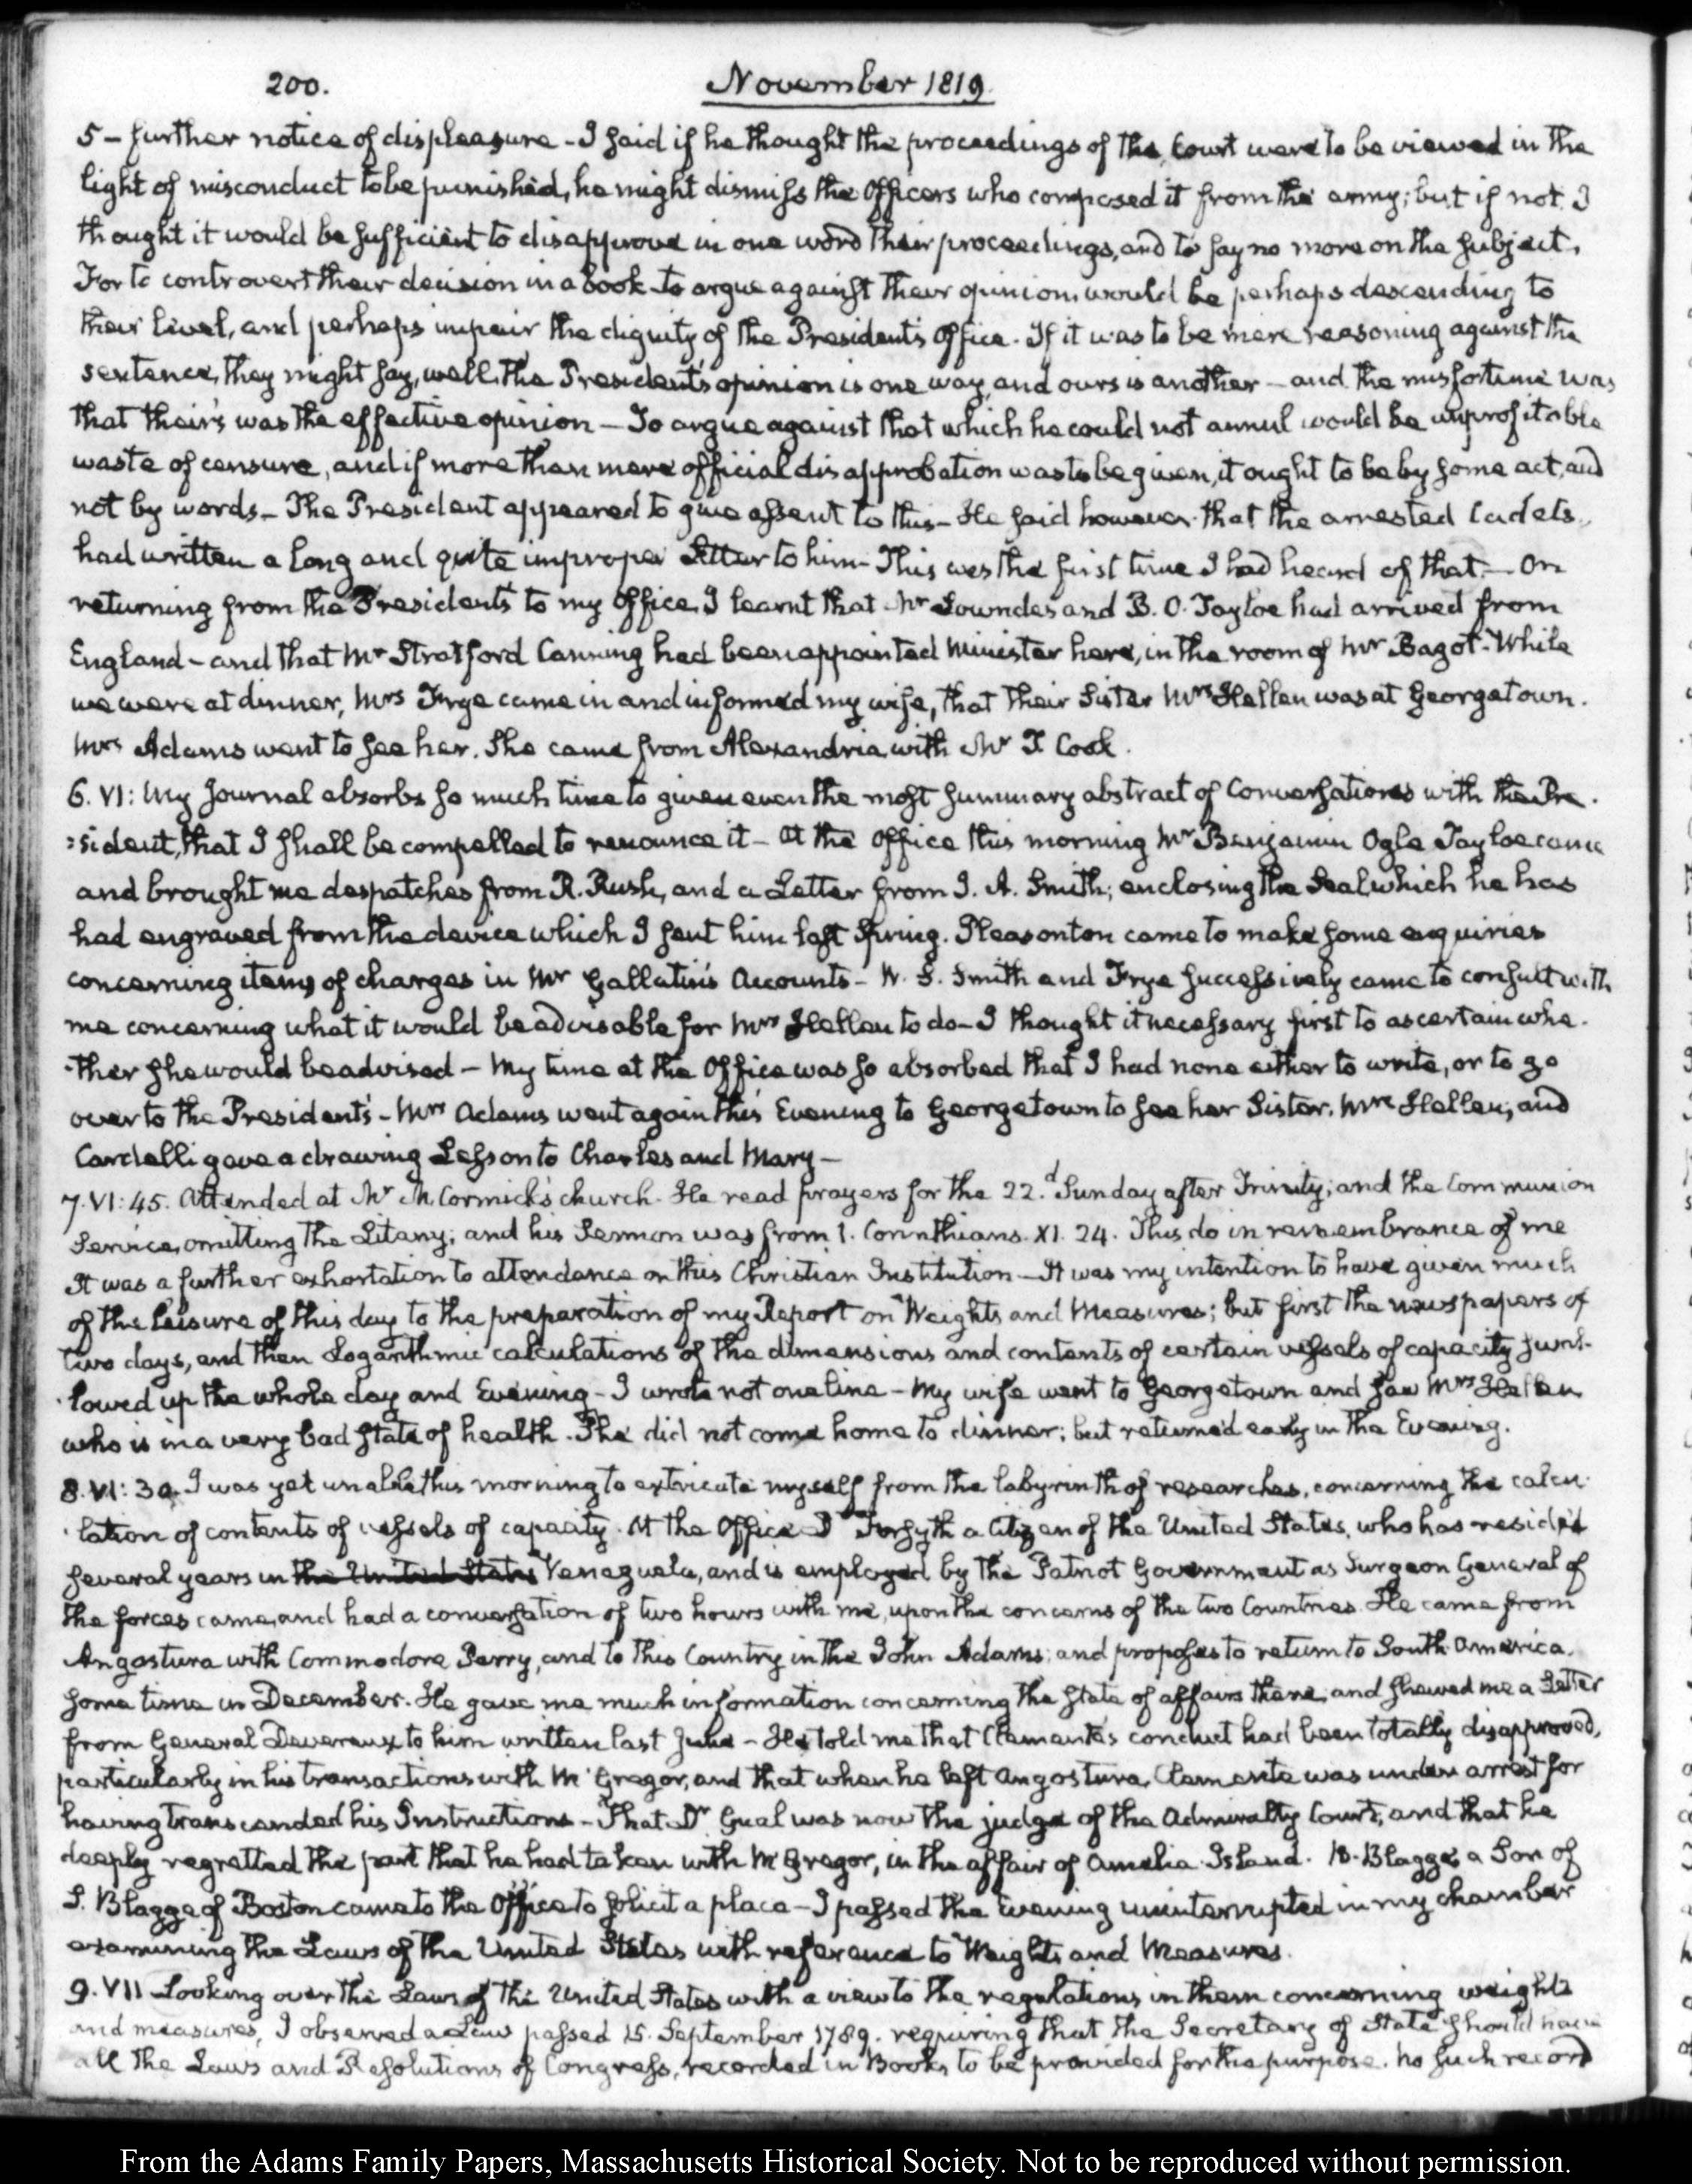 200. November 1819.
5 - further notice of displeasure - I said if he thought the proceedings of the Court were to be viewed in the
light of misconduct to be punished, he might dismiss the Officers who composed it from the army; but if not I
thought it would be sufficient to disapprove in one word their proceedings, and to say no more on the subject.
For to controvert their decision in a book to argue against their opinion, would be perhaps descending to
their level, and perhaps impair the dignity of the President's Office. If it was to be mere reasoning against the
sentence, they might say, well, the President's opinion is one way, and ours is another - and the misfortune was
that their's was the effective opinion - To argue against that which he could not annul would be unprofitable
waste of censure, and if more than mere official disapprobation was to be given, it ought to be by some act, and
not by words - The President appeared to give assent to this - He said however that the arrested Cadets,
had written a long and quite improper Letter to him - This was the first time I had heard of that. - On
returning from the President's to my Office, I learnt that Mr Lowndes and B. O. Tayloe had arrived from
England - and that Mr Stratford Canning had been appointed Minister here, in the room of Mr Bagot. While
we were at dinner, Mrs Frye came in and informed my wife, that their Sister Mrs Hellen was at Georgetown.
Mrs Adams went to see her. She came from Alexandria with Mr T. Cook.
6. VI: My Journal absorbs so much time to given even the most summary abstract of Conversations with the Pre-
:sident, that I shall be compelled to renounce it - At the Office this morning Mr Benjamin Ogle Tayloe came
and brought me despatches from R. Rush, and a Letter from J. A. Smith; enclosing the Seal which he has
had engraved from the device which I sent him last Spring. Pleasonton came to make some enquiries
concerning items of charges in Mr Gallatin's Accounts - W. S. Smith and Frye successively came to consult with
me concerning what it would be advisable for Mrs Hellen to do - I thought it necessary first to ascertain whe-
-ther she would be advised - My time at the Office was so absorbed that I had none either to write, or to go
over to the President's - Mrs Adams went again this Evening to Georgetown to see her Sister, Mrs Hellen; and
Cardelli gave a drawing Lesson to Charles and Mary -
7. VI: 45. Attended at Mr McCormick's church. He read prayers for the 22.d Sunday after Trinity; and the Communion
Service, omitting the Litany; and his Sermon was from 1. Corinthians. XI. 24. This do in remembrance of me
It was a further exhortation to attendance on this Christian Institution - It was my intention to have given much
of the leisure of this day to the preparation of my Report on Weights and Measures; but first the newspapers of
two days, and then Logarithmic calculations of the dimensions and contents of certain vessels of capacity swal-
-lowed up the whole day and Evening - I wrote not one line - My wife went to Georgetown and saw Mrs Hellen
who is in a very bad state of health. She did not come home to dinner; but returned early in the Evening.
8. VI: 30. I was yet unable this morning to extricate myself from the labyrinth of researches, concerning the calcu-
-lation of contents of vessels of capacity. At the Office Forsyth a Citizen of the United States, who has resided
several years in the United States Venezuela, and is employed by the Patriot Government as Surgeon General of
the forces came, and had a conversation of two hours with me, upon the concerns of the two Countries. He came from
Angostura with Commodore Perry, and to this Country in the John Adams; and proposes to return to South America.
some time in December. He gave me much information concerning the state of affairs there, and shewed me a Letter
from General Devereux to him written last June - He told me that Clemente's conduct had been totally disapproved,
particularly in his transactions with McGregor, and that when he left Angostura, Clemente was under arrest for
having transcended his Instructions - That Dr Gual was now the judge of the Admiralty Court, and that he
deeply regretted the part that he had taken with McGregor, in the affair of Amelia Island. B. Blagge a Son of
S. Blagge of Boston came to the Office to solicit a place - I passed the Evening uninterrupted in my chamber
examining the Laws of the United States with reference to Weights and Measures.
9. VII Looking over the Laws of the United States with a view to the regulations in them concerning weights
and measures, I observed a Law passed 15. September 1789. requiring that the Secretary of State should have
all the Laws and Resolutions of Congress, recorded in Books to be provided for the purpose. No such record
From the Adams Family Papers, Massachusetts Historical Society. Not to be reproduced without permission.